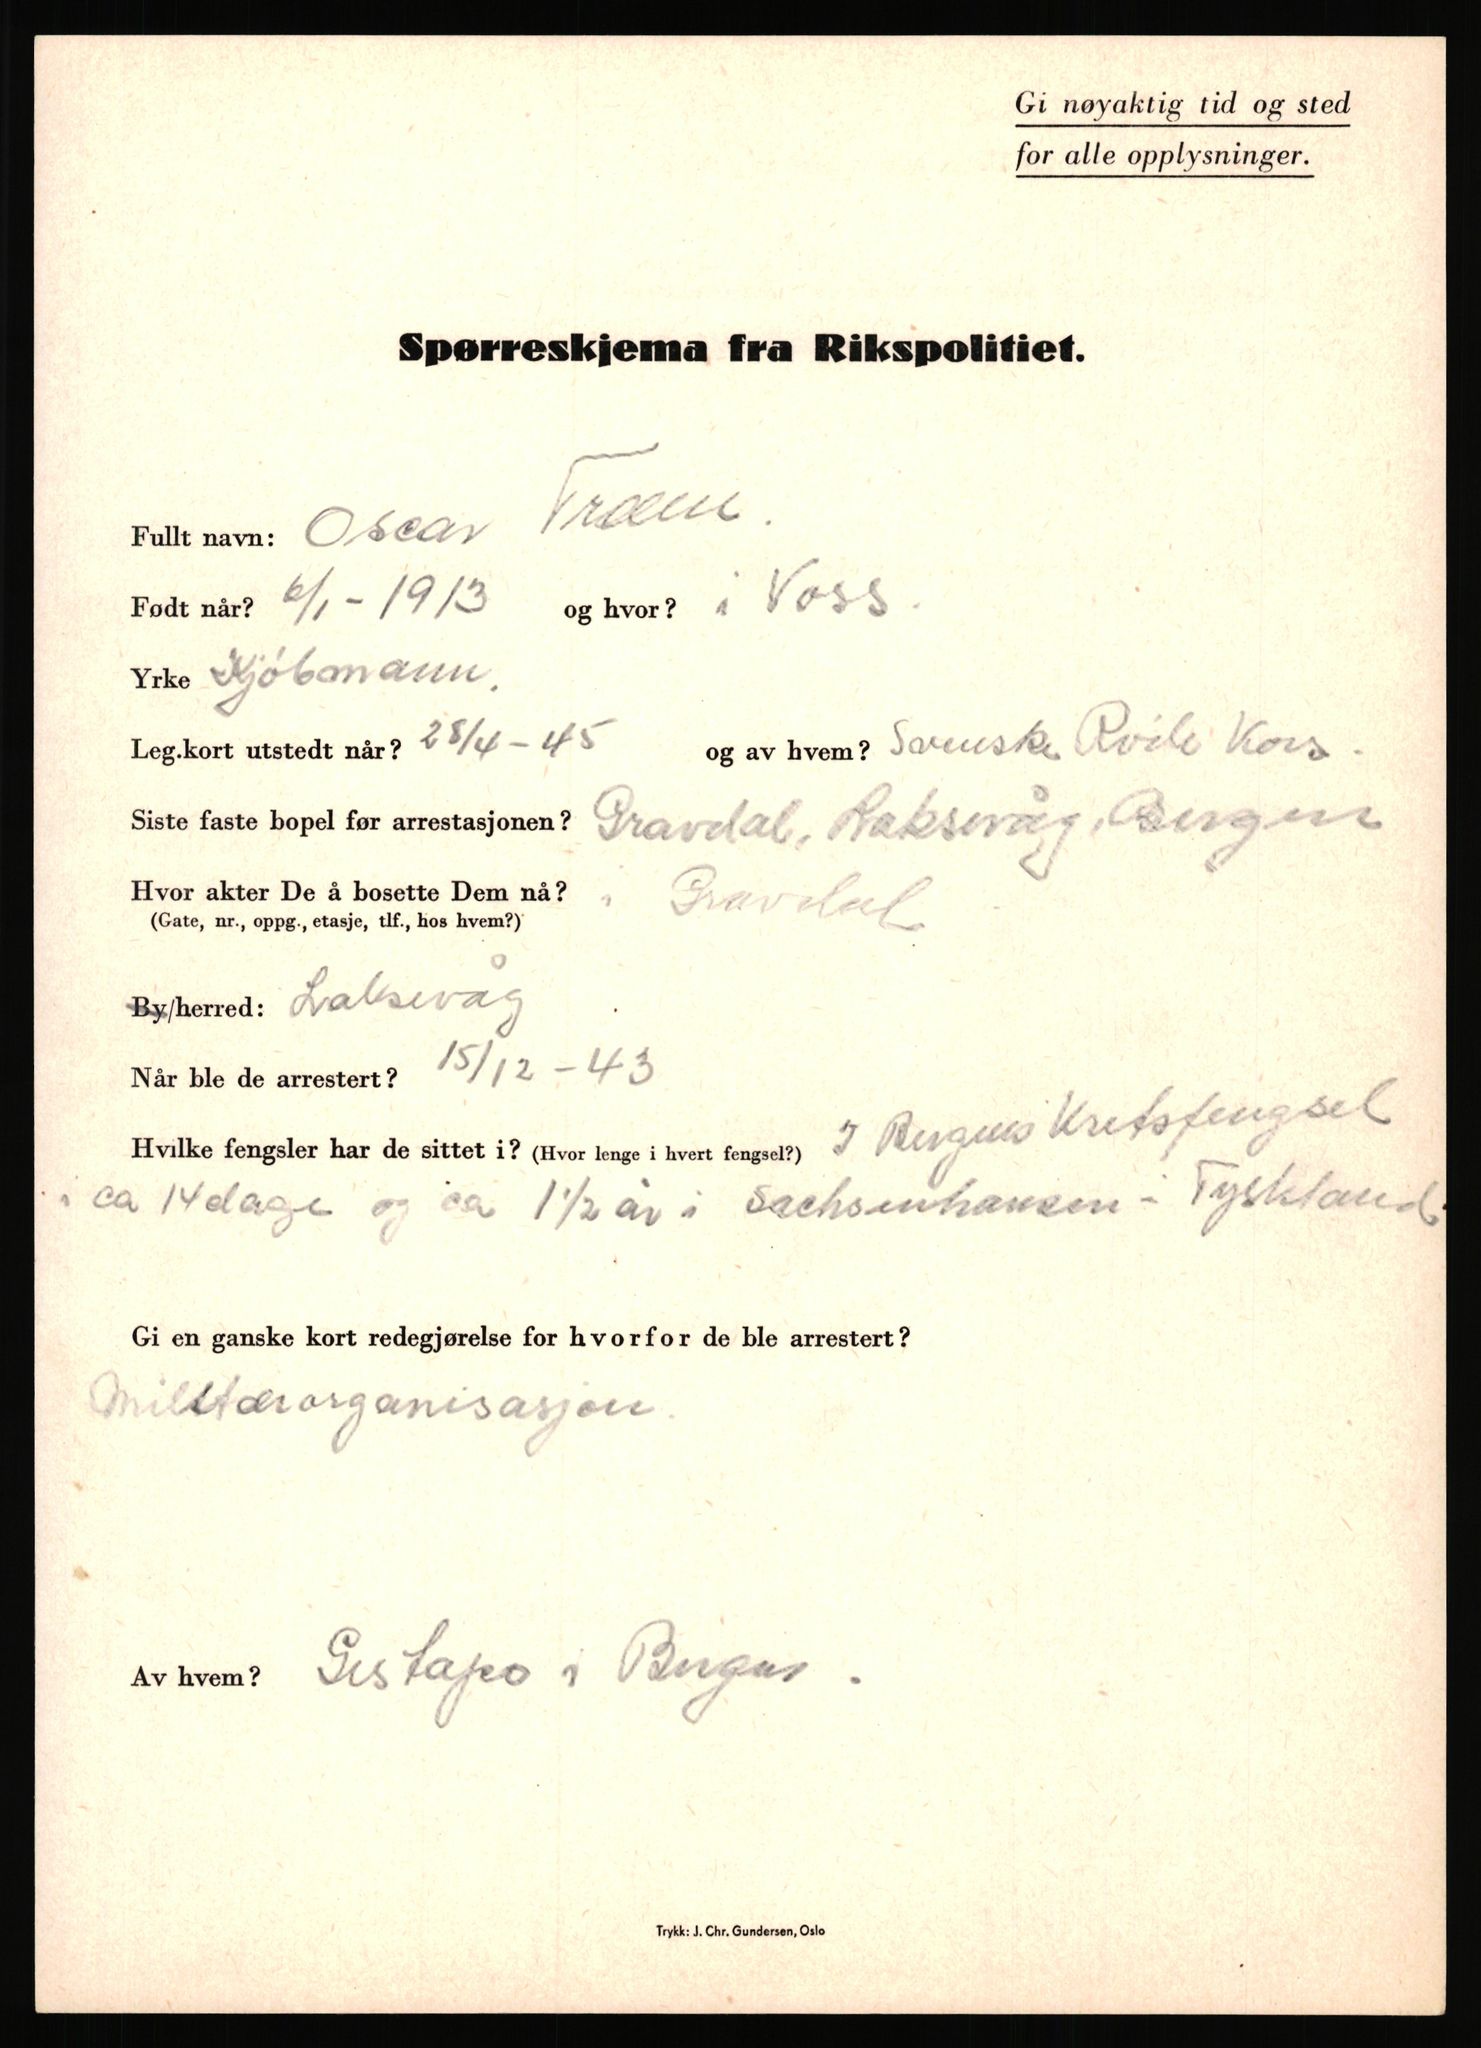 Gi nøyaktig tid og sted
for alle opplysninger.
Spørreskjema fra Rikspolitiet.
Fullt navn: Oscar Træen.
Født når? 6/1 - 1913 og hvor? i Voss.
Yrke Kjóbmann.
Leg.kort utstedt når? 28/4 - 45 og av hvem? Svenske Röde Kors.
Siste faste bopel før arrestasjonen? Gravdal, Laksevåg, Bergen
Hvor akter De å bosette Dem nå? i Gravdal
(Gate, nr., oppg., etasje, tlf., hos hvem?)
By/herred: Laksevåg
Når ble de arrestert? 15/12 - 43
Hvilke fengsler har de sittet i? (Hvor lenge i hvert fengsel?) I Bergens Kretsfengsel
i ca 14 dage og ca 1 1/2 år i Sachsenhausen i Tyskland.
Gi en ganske kort redegjørelse for hvorfor de ble arrestert?
Militærorganisasjon.
Av hvem? Gestapo i Bergen.
Trykk: J. Chr. Gundersen, Oslo